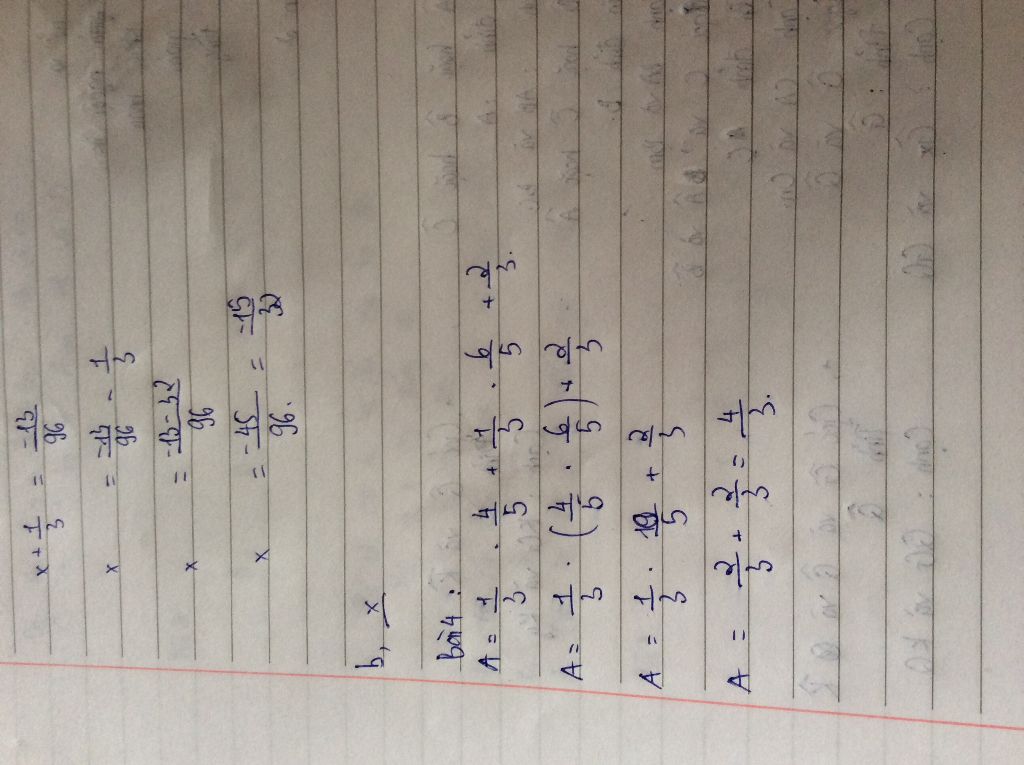 x + 1/3 = -13/96
x = -13/96 - 1/3
x = -13-32/96
x = -45/96. = -15/32
b, x/
Bài 4:
A = 1/3 . 4/5 + 1/3 . 6/5 + 2/3.
A = 1/3 . (4/5 . 6/5) + 2/3
A = 1/3 . 10/5 + 2/3
A = 2/3 + 2/3 = 4/3.